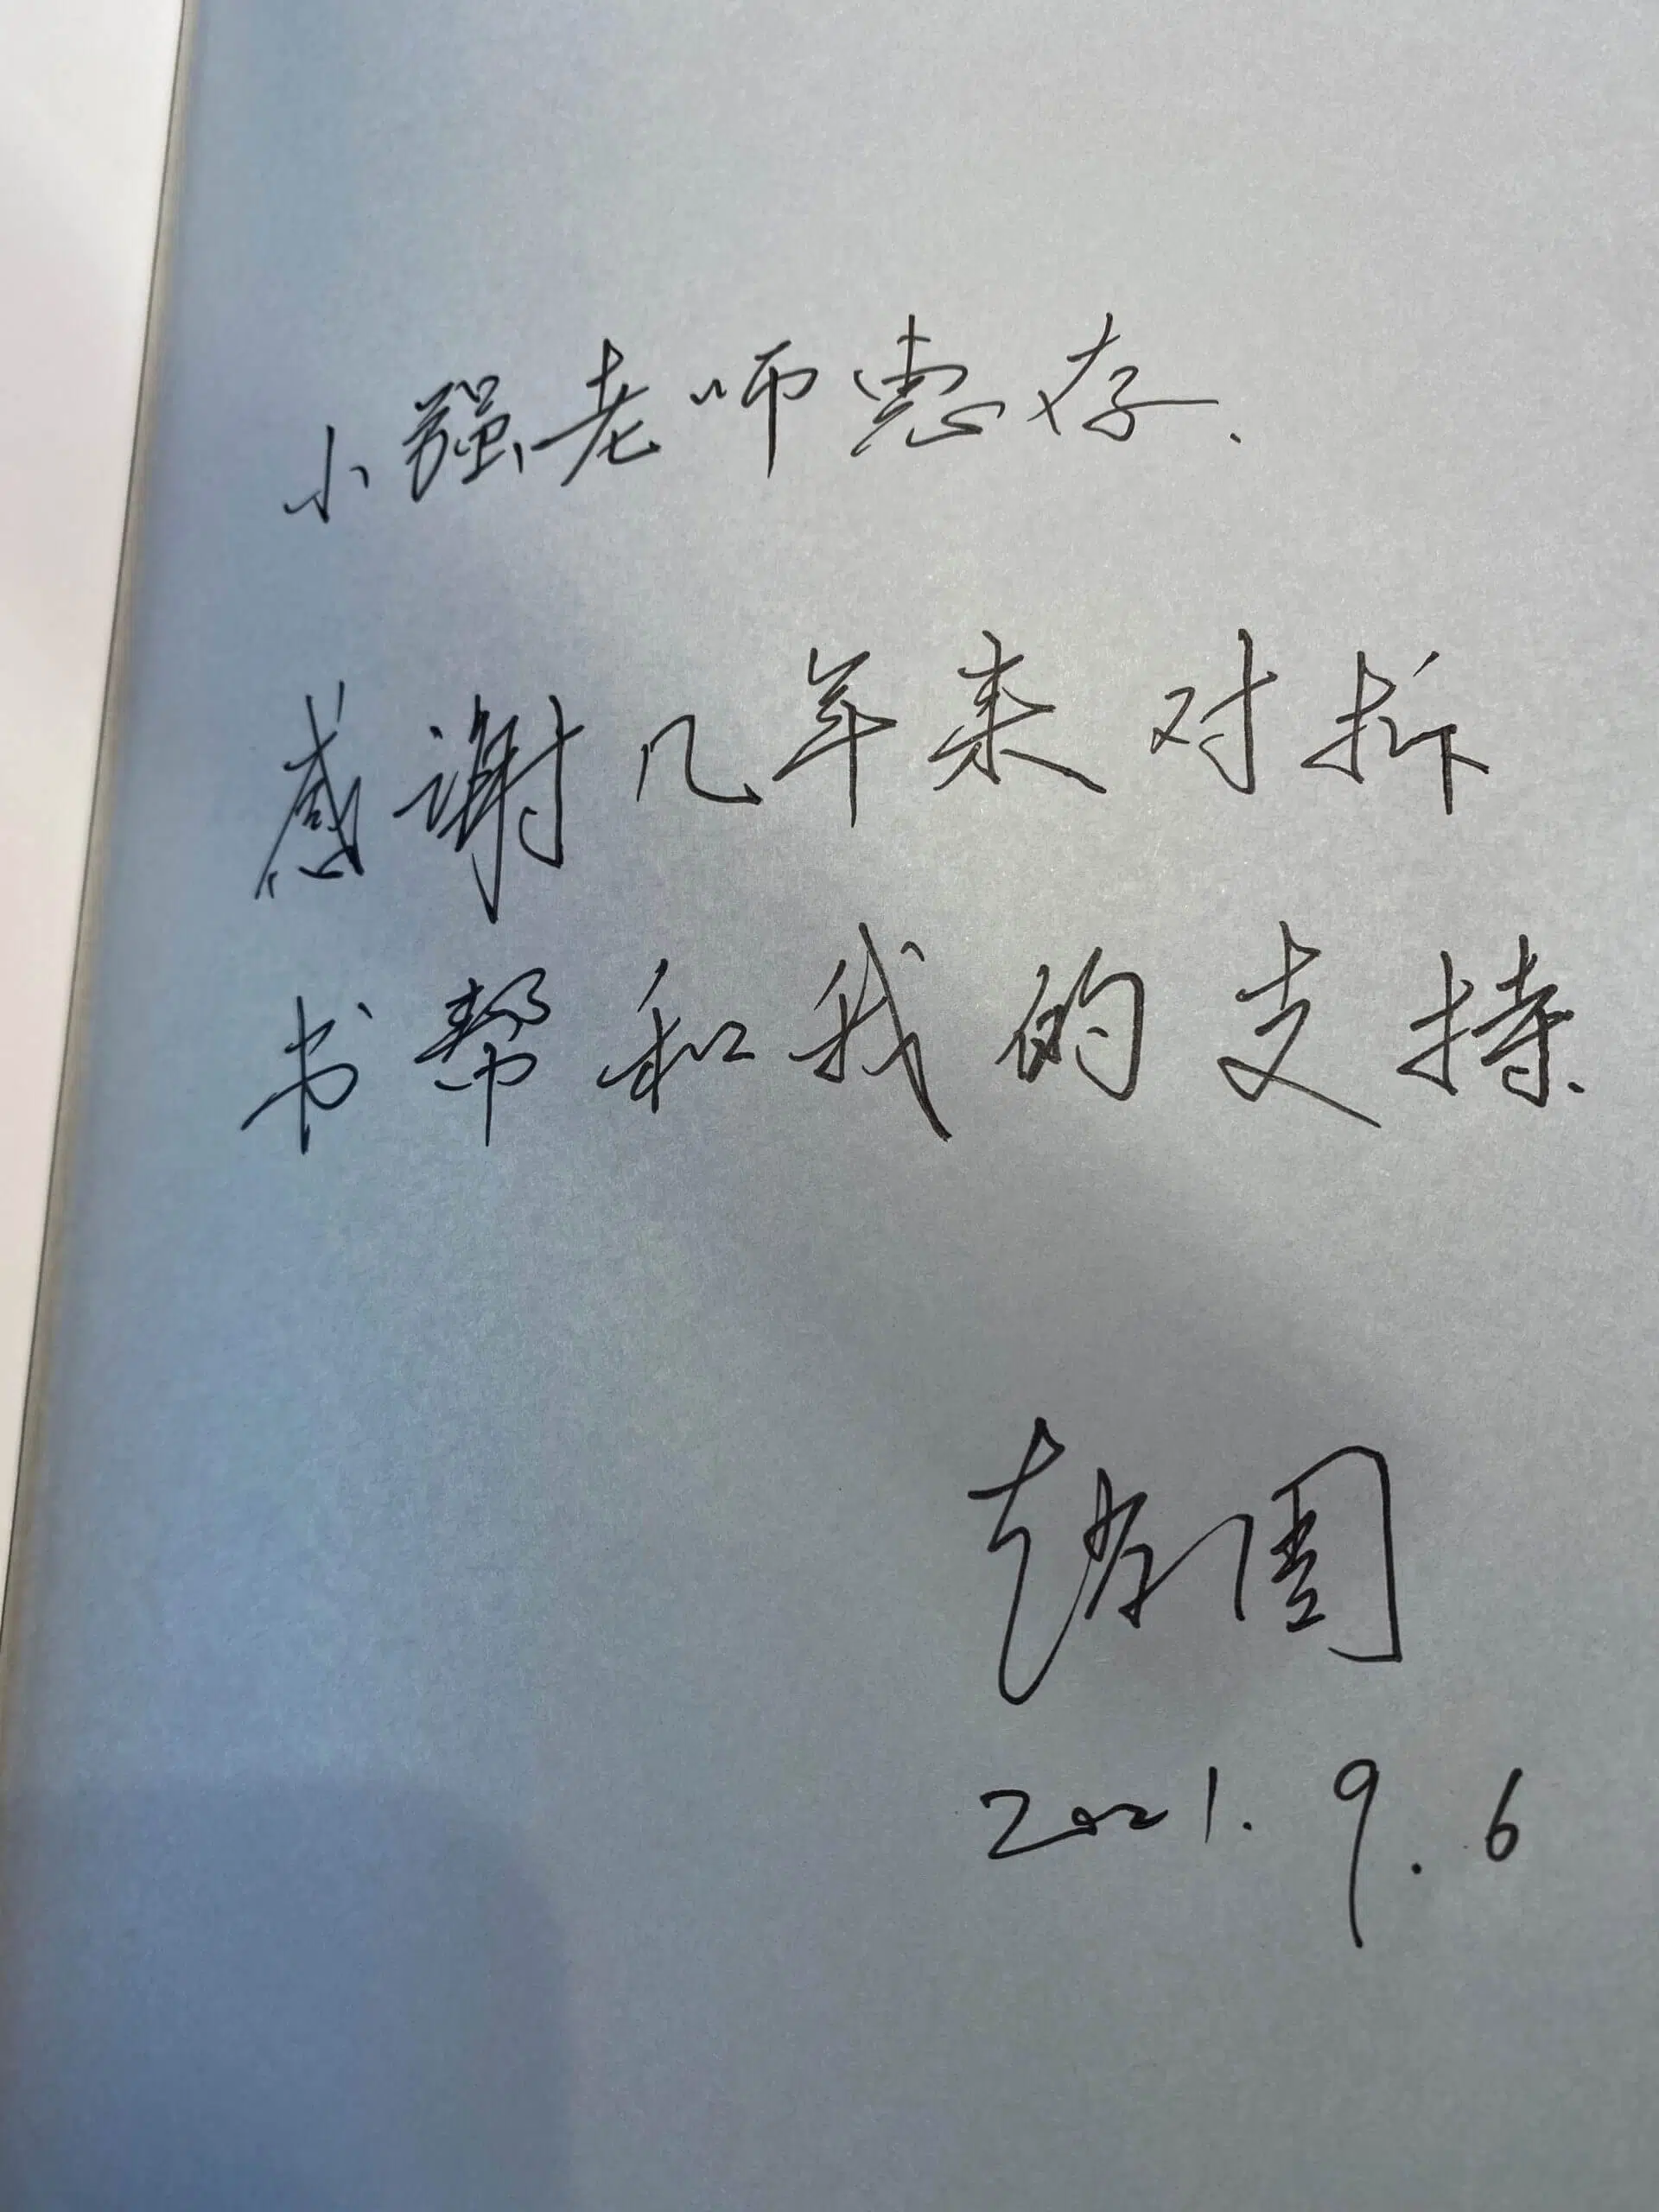 小强老师惠存.
感谢几年来对拆
书帮和我的支持.
赵周
2021.9.6